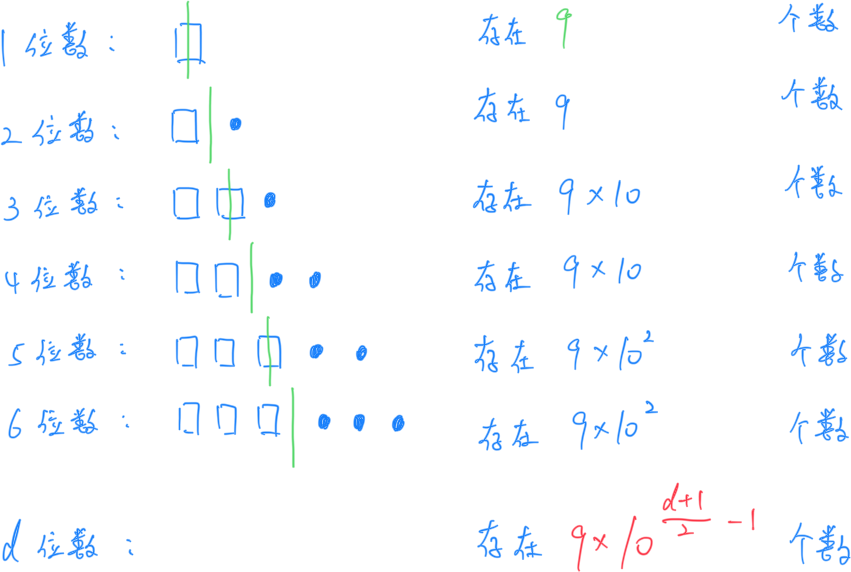 1 位数： 存在 9 个数
2 位数： 存在 9 个数
3 位数： 存在 9 × 10 个数
4 位数： 存在 9 × 10 个数
5 位数： 存在 9 × 10² 个数
6 位数： 存在 9 × 10² 个数
d 位数： 存在 9 × 10^((d+1)/2 - 1) 个数